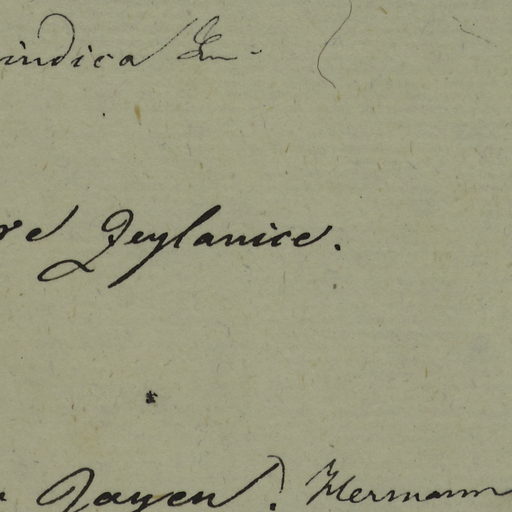 indica Lin.
re Zeylanice.
Zayen. Hermann